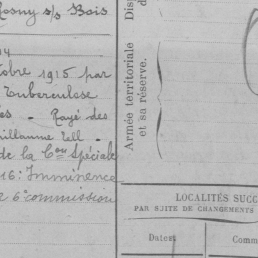 Rosny s/s Bois
14
tobre 1915 par
Tuberculose
es - Rayé des
uillaume Tell -
de la Con Spéciale
16: Imminence
e 6e commission
Armée territoriale
et sa réserve.
Dis
d
LOCALITÉS SUCC
PAR SUITE DE CHANGEMENTS
Dates
Comm